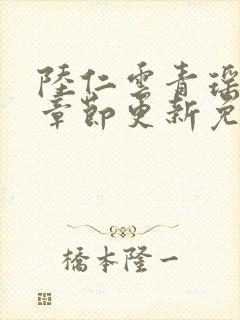 陸仁雲青瑶
章節更新免
橋本隆一